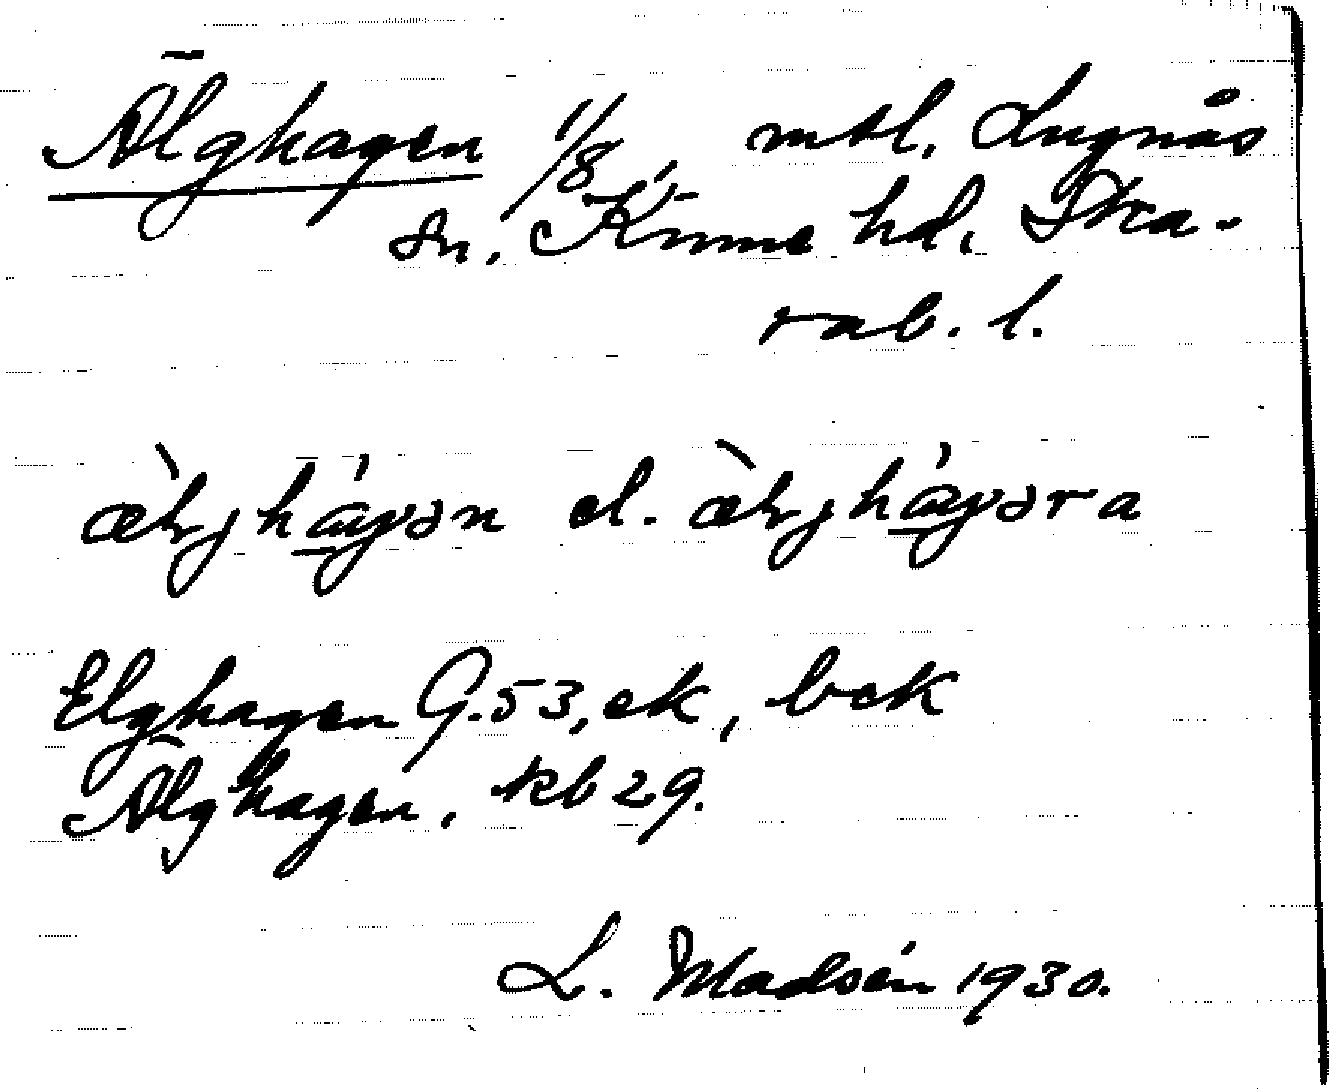 Älghagen 1/8 mtl. Lugnås
sn. Kinne hd. Ska-
rab. l.
æ̀ljhá̱gən el. æ̀ljhá̱gəra
Elghagen G.53, ek, bek
Älghagen, kb 29.
L. Madsén 1930.